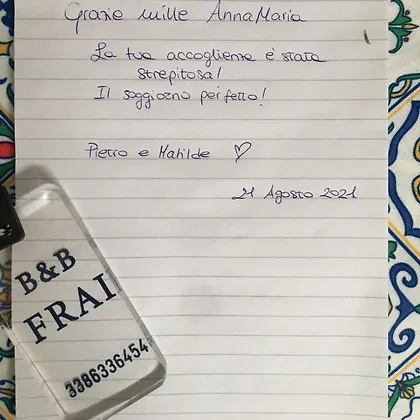 Grazie mille AnnaMaria
La tua accoglienza è stata
strepitosa!
Il soggiorno perfetto!
Pietro e Matilde ♡
21 Agosto 2021
B&B
FRAI
3386336454